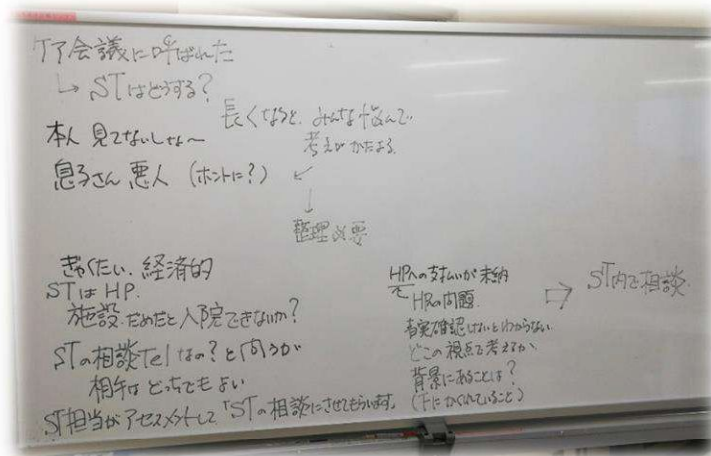 ケア会議に呼ばれた
↳ STはどうする?
長くなると、みんな悩んで
考えがかたよる
本人 見てないしな〜
息子さん 悪人 (ホントに?)
整理必要
ぎゃくたい、経済的
STは HP.
施設だめだと入院できないか?
STの相談Telなの?と問うが
相手はどっちでもよい
ST担当がアセスメントして「STの相談にさせてもらいます」
HPへの支払いが未納
HPの問題
事実確認しないとわからない
どこの視点で考えるか
背景にあることは?
(下にかくれていること)
⇨ ST内で相談